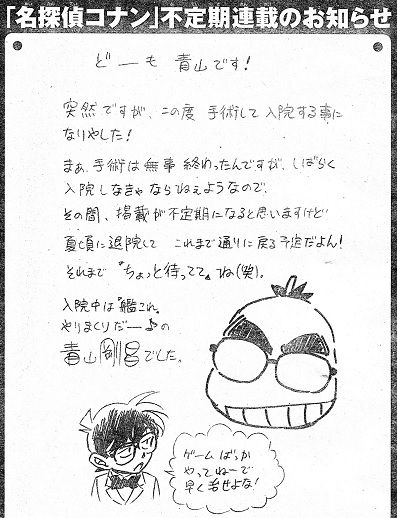 「名探偵コナン」不定期連載のお知らせ
どーも 青山です!
突然ですが、この度 手術して入院する事に
なりやした!
まぁ、手術は無事終わったんですが、しばらく
入院しなきゃならねぇようなので、
その間、掲載が不定期になると思いますけど
夏頃に退院して これまで通りに戻る予定だよん!
それまで『ちょっと待ってて』ね(笑)。
入院中は『艦これ』
やりまくりだー♪の
青山剛昌でした。
ゲームばっか
やってねーで
早く治せよな!